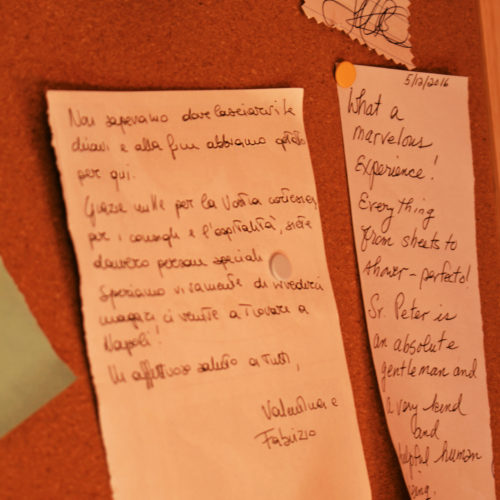 Non sapevamo dove lasciarvi le
chiavi e alla fine abbiamo optato
per qui.
Grazie mille per la Vostra cortesia,
per i consigli e l'ospitalità, siete
davvero persone speciali
Speriamo vivamente di rivederci
magari ci venite a trovare a
Napoli!
Un affettuoso saluto a tutti,
Valentina e
Fabrizio
5/12/2016
What a
marvelous
experience!
Everything
from sheets to
shower - perfecto!
Sr. Peter is
an absolute
gentleman and
a very kind
and
helpful human